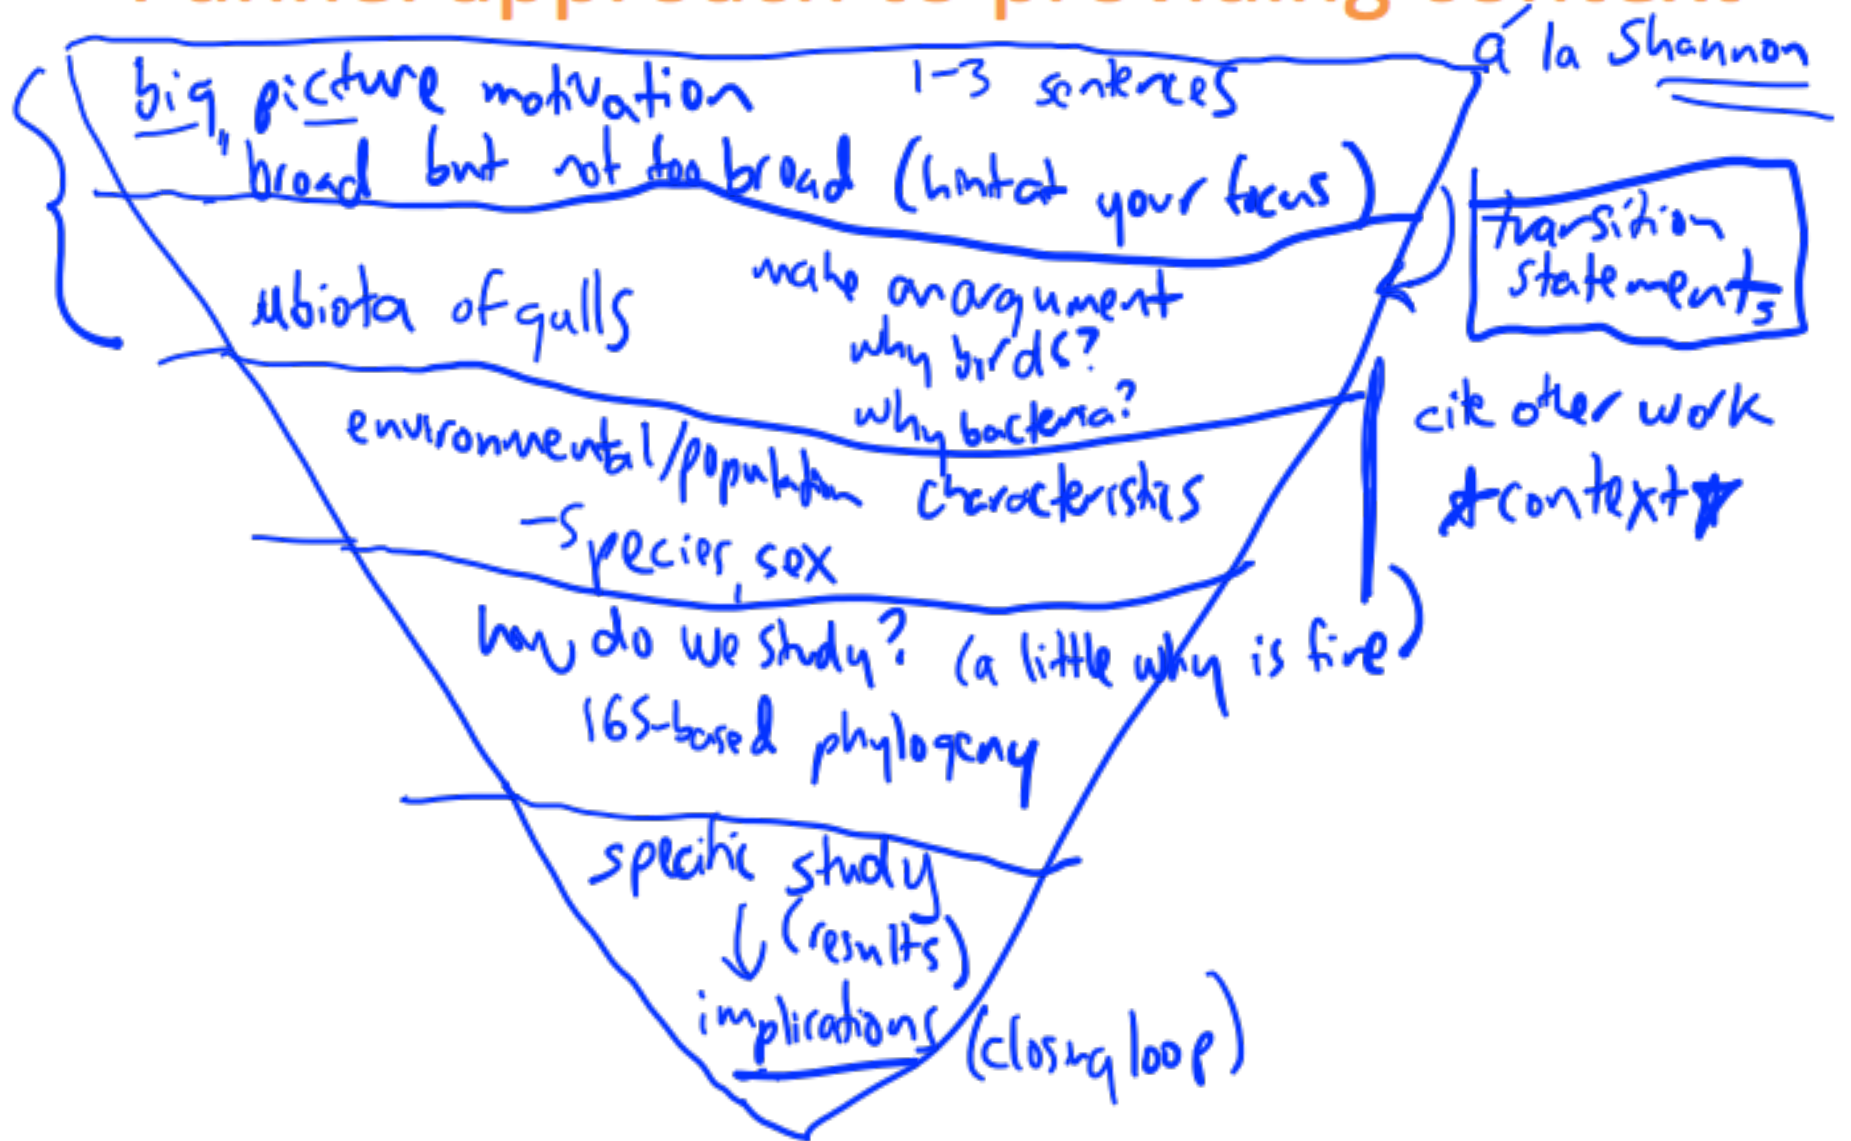 Funnel approach to providing context
á la Shannon
big picture motivation 1-3 sentences
broad but not too broad (hint at your focus)
transition
statements
μbiota of gulls
make an argument
why birds?
why bacteria?
cite other work
context
environmental/population characteristics
- species, sex
how do we study? (a little why is fine)
16S-based phylogeny
specific study
(results)
implications (closing loop)